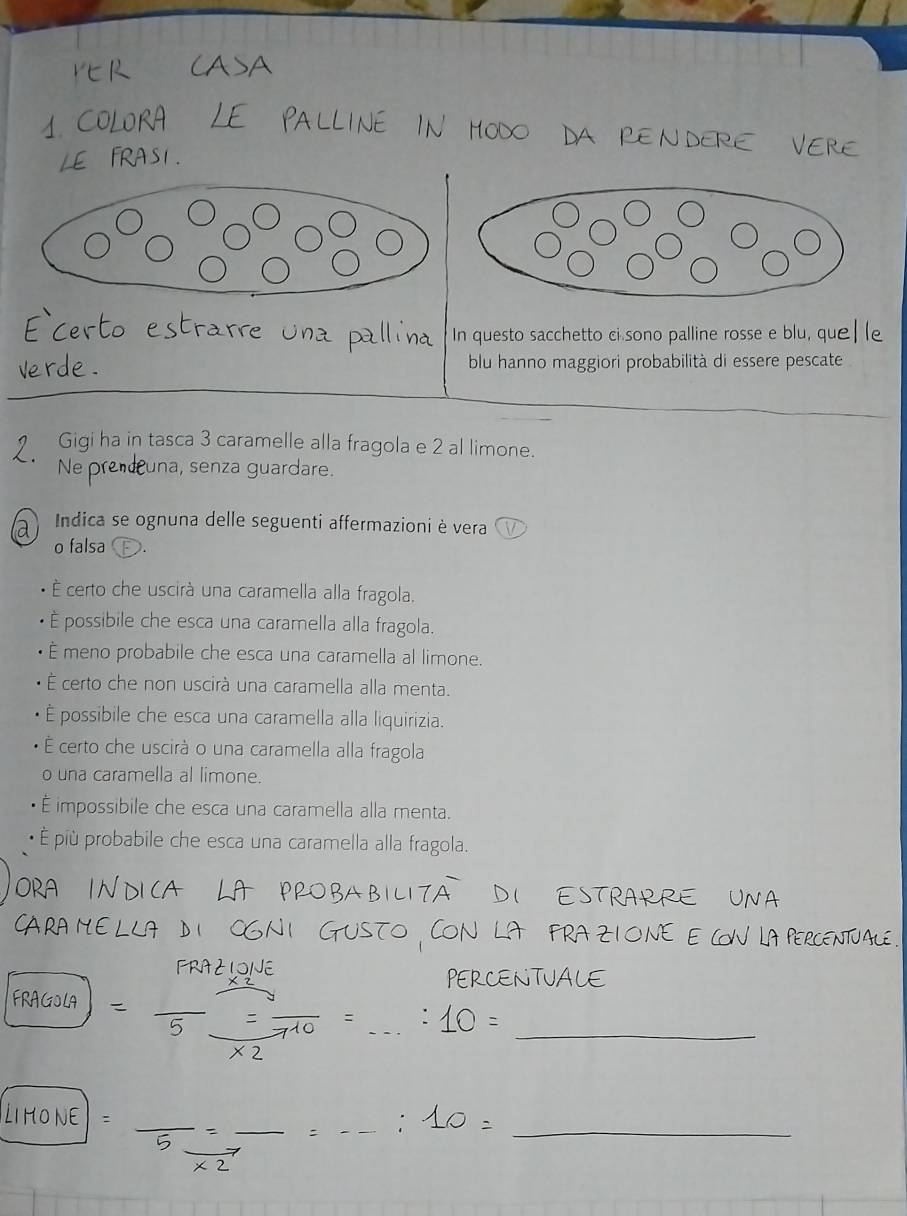 PER CASA
1. COLORA LE PALLINE IN MODO DA RENDERE VERE
LE FRASI.
E' certo estrarre una pallina
verde.
In questo sacchetto ci sono palline rosse e blu, quelle
blu hanno maggiori probabilità di essere pescate
2. Gigi ha in tasca 3 caramelle alla fragola e 2 al limone.
Ne prende una, senza guardare.
a Indica se ognuna delle seguenti affermazioni è vera V
o falsa F.
• È certo che uscirà una caramella alla fragola.
• È possibile che esca una caramella alla fragola.
• È meno probabile che esca una caramella al limone.
• È certo che non uscirà una caramella alla menta.
• È possibile che esca una caramella alla liquirizia.
• È certo che uscirà o una caramella alla fragola
o una caramella al limone.
• È impossibile che esca una caramella alla menta.
• È più probabile che esca una caramella alla fragola.
) ORA INDICA LA PROBABILITÀ DI ESTRARRE UNA
CARAMELLA DI OGNI GUSTO, CON LA FRAZIONE E CON LA PERCENTUALE.
FRAZIONE PERCENTUALE
x2
FRAGOLA = __/5 = __/10 = --- : 10 = ______
x2
LIMONE = __/5 = __ = --- : 10 = ______
x2